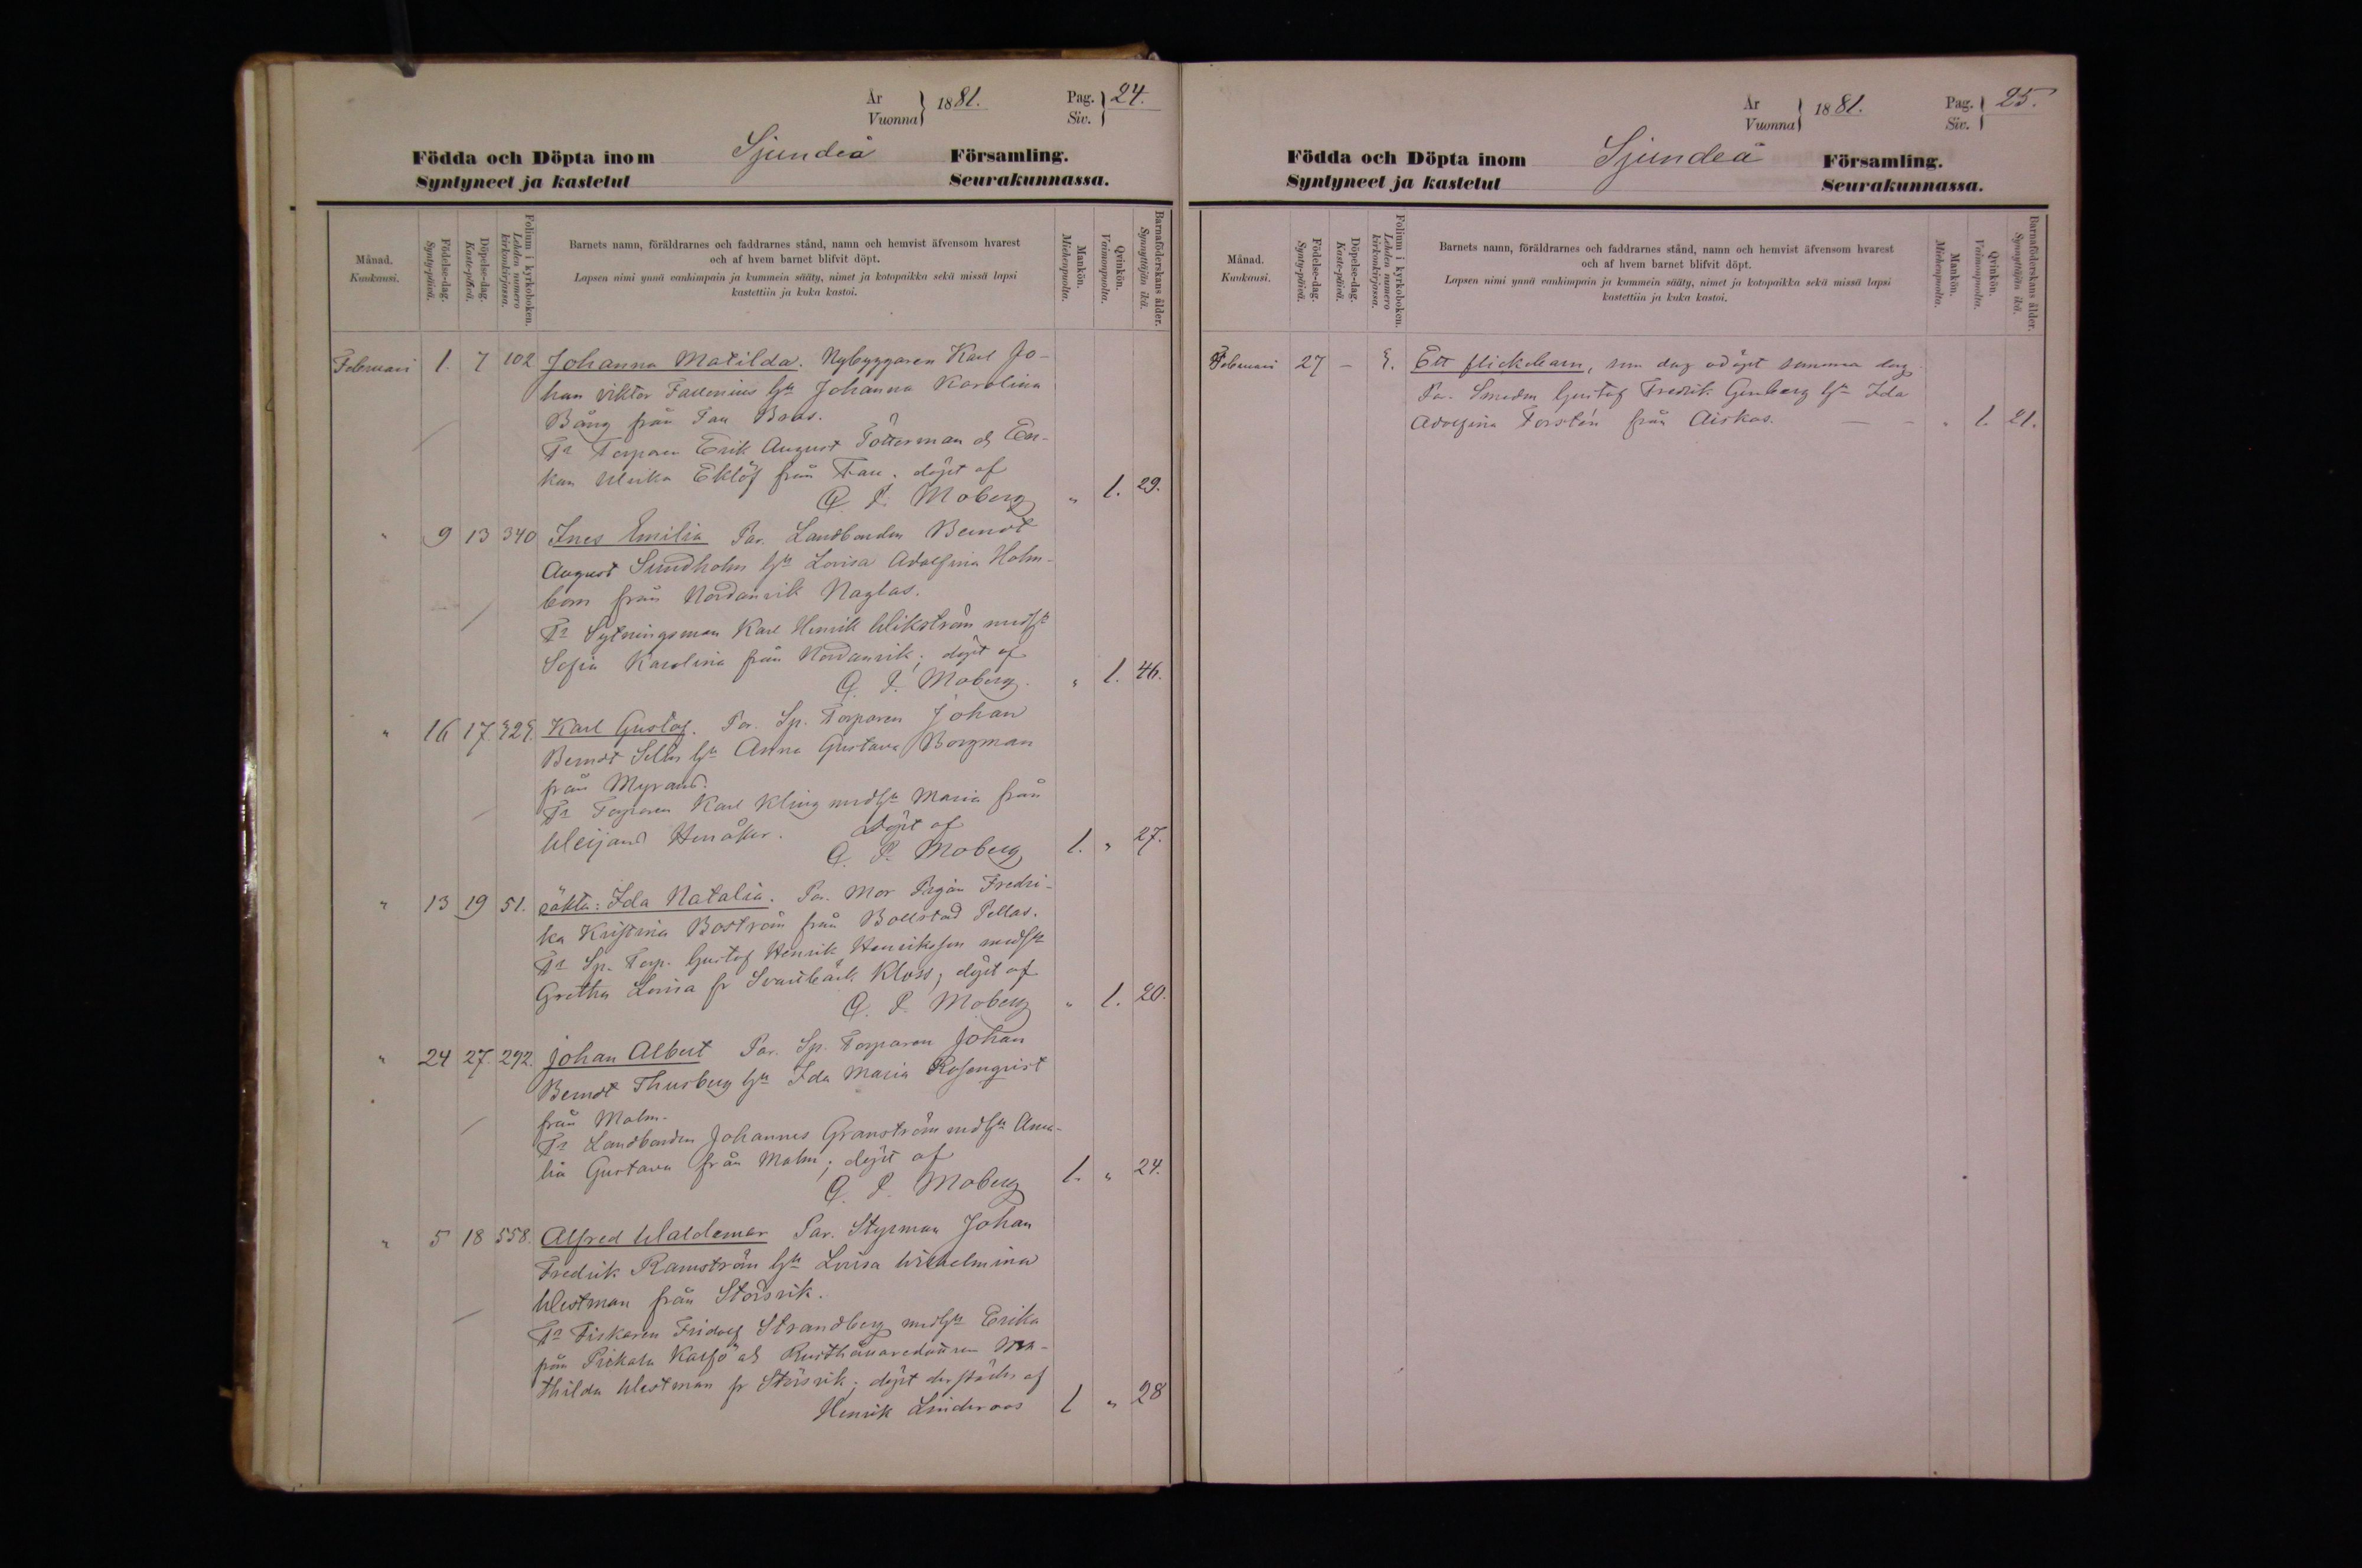 År
Vuonna
1881.
Pag.
Siv.
24.
Födda och Döpta inom Sjundeå Församling.
Syntyneet ja kastetut Seurakunnassa.
Månad.
Kuukausi.
Födelse-dag.
Synty-päivä.
Döpelse-dag.
Kaste-päivä.
Folium i kyrkoboken.
Lehden numero
kirkonkirjassa.
Barnets namn, föräldrarnes och faddrarnes stånd, namn och hemvist äfvensom hvarest
och af hvem barnet blifvit döpt.
Lapsen nimi ynnä vanhimpain ja kummein sääty, nimet ja kotopaikka sekä missä lapsi
kastettiin ja kuka kastoi.
Mankön.
Miehenpuolta.
Qvinkön.
Vaimonpuolta.
Barnaföderskans ålder.
Synnyttäjän ikä.
Februari 1. 7 102 Johanna Matilda. Nybyggaren Karl Jo-
han Viktor Hu Johanna Karolina
Bång från
Fr Torparen Erik August Totterman och En-
kan Ulrika Eklöf från döpt af
G. P. Moberg " 1. 29.
" 9 13 340 Ines Emilia Par. Landbonden Berndt
August Sundholm Hu Lovisa Adolfina Holm-
bom från Nordanvik Naglas.
Fr Sytningsman Karl Henrik Wikström med Hu
Sofia Karolina från Nordanvik; döpt af
G. P. Moberg. " 1. 46.
" 16 17 329. Karl Gustaf. Par. Sp. Torparen Johan
Berndt Hu Anna Gustava Borgman
från Myrans.
Fr Torparen Karl Kling med Hu Maria från
Döpt af
G. P. Moberg 1. " 27.
" 13 19 51. oäkta: Ida Natalia. Par. Mor Pigan Fredri-
ka Kristina Boström från Bollstad Pellas.
Fr Sp. Torp. Gustaf Henrik Henriksson med Hu
Gretha Lovisa fr Svartbäck Kloss; döpt af
G. P. Moberg " 1. 20.
" 24 27. 292. Johan Albert Par. Sp. Torparen Johan
Berndt Thusberg Hu Ida Maria Rosenqvist
från Malm.
Fr Landbonden Johannes Granström med Hu Ama-
lia Gustava från Malm; döpt af
G. P. Moberg 1. " 24.
" 5 18 558. Alfred Waldemar Par. Styrman Johan
Fredrik Ramström Hu Lovisa Wilhelmina
Westman från Störsvik.
Fr Fiskaren Fridolf Strandberg med Hu Erika
från Pickala och Rusthållaredottren Ma-
thilda Westman fr Störsvik; döpt derstädes af
Henrik Linderoos 1 " 28
År
Vuonna
1881.
Pag.
Siv.
25.
Födda och Döpta inom Sjundeå Församling.
Syntyneet ja kastetut Seurakunnassa.
Månad.
Kuukausi.
Födelse-dag.
Synty-päivä.
Döpelse-dag.
Kaste-päivä.
Folium i kyrkoboken.
Lehden numero
kirkonkirjassa.
Barnets namn, föräldrarnes och faddrarnes stånd, namn och hemvist äfvensom hvarest
och af hvem barnet blifvit döpt.
Lapsen nimi ynnä vanhimpain ja kummein sääty, nimet ja kotopaikka sekä missä lapsi
kastettiin ja kuka kastoi.
Mankön.
Miehenpuolta.
Qvinkön.
Vaimonpuolta.
Barnaföderskans ålder.
Synnyttäjän ikä.
Februari 27 – 9. Ett flickebarn, som dog odöpt samma dag.
Par. Smeden Gustaf Fredrik Hu Ida
Adolfina Forstén från Aiskas. – – " 1. 21.